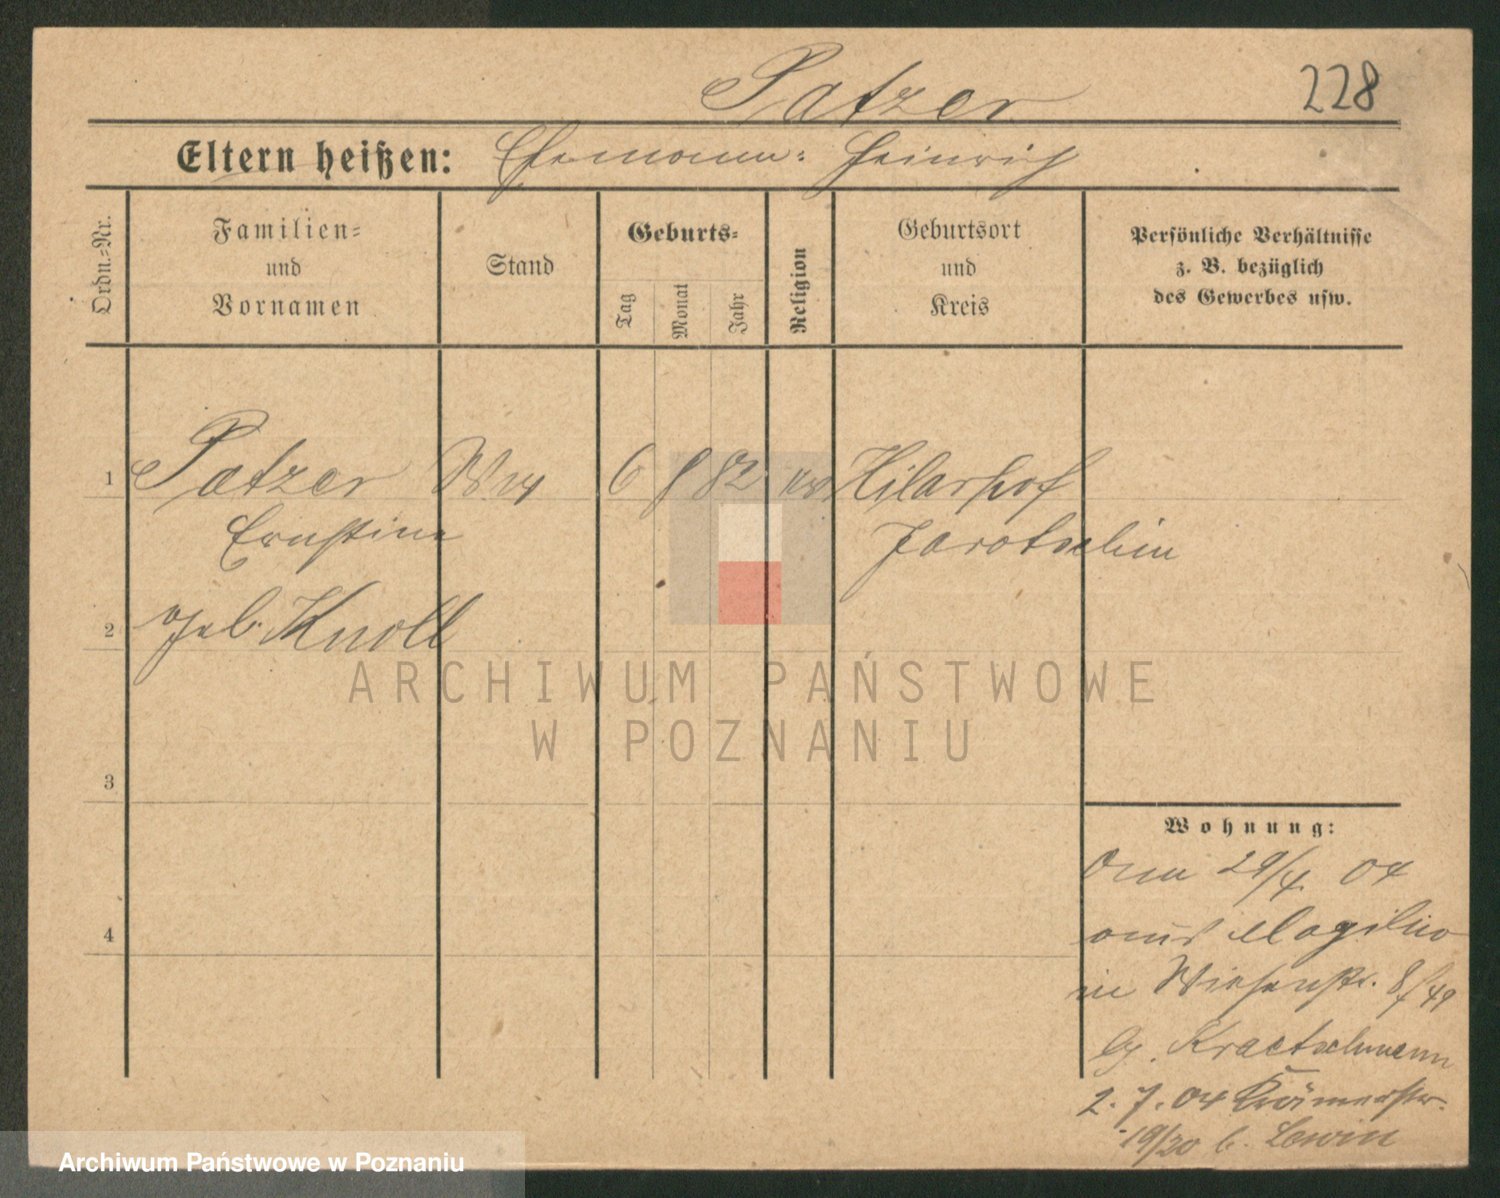 Patzer
228
Eltern heißen: Ehemann: Heinrich
Ordn.-Nr.
Familien-
und
Vornamen
Stand
Geburts-
Tag
Monat
Jahr
Religion
Geburtsort
und
Kreis
Persönliche Verhältnisse
z. B. bezüglich
des Gewerbes usw.
1 Patzer 6 82 Hilarhof
Ernstine Jarotschin
2 geb. Knoll
ARCHIWUM PAŃSTWOWE
W POZNANIU
3
Wohnung:
29/4. 04
4
aus Mogilno
in Wiesenstr. 8/49
Kraetschmann
2. 7. 04 Krämerstr.
19/20 b. Lewin
Archiwum Państwowe w Poznaniu